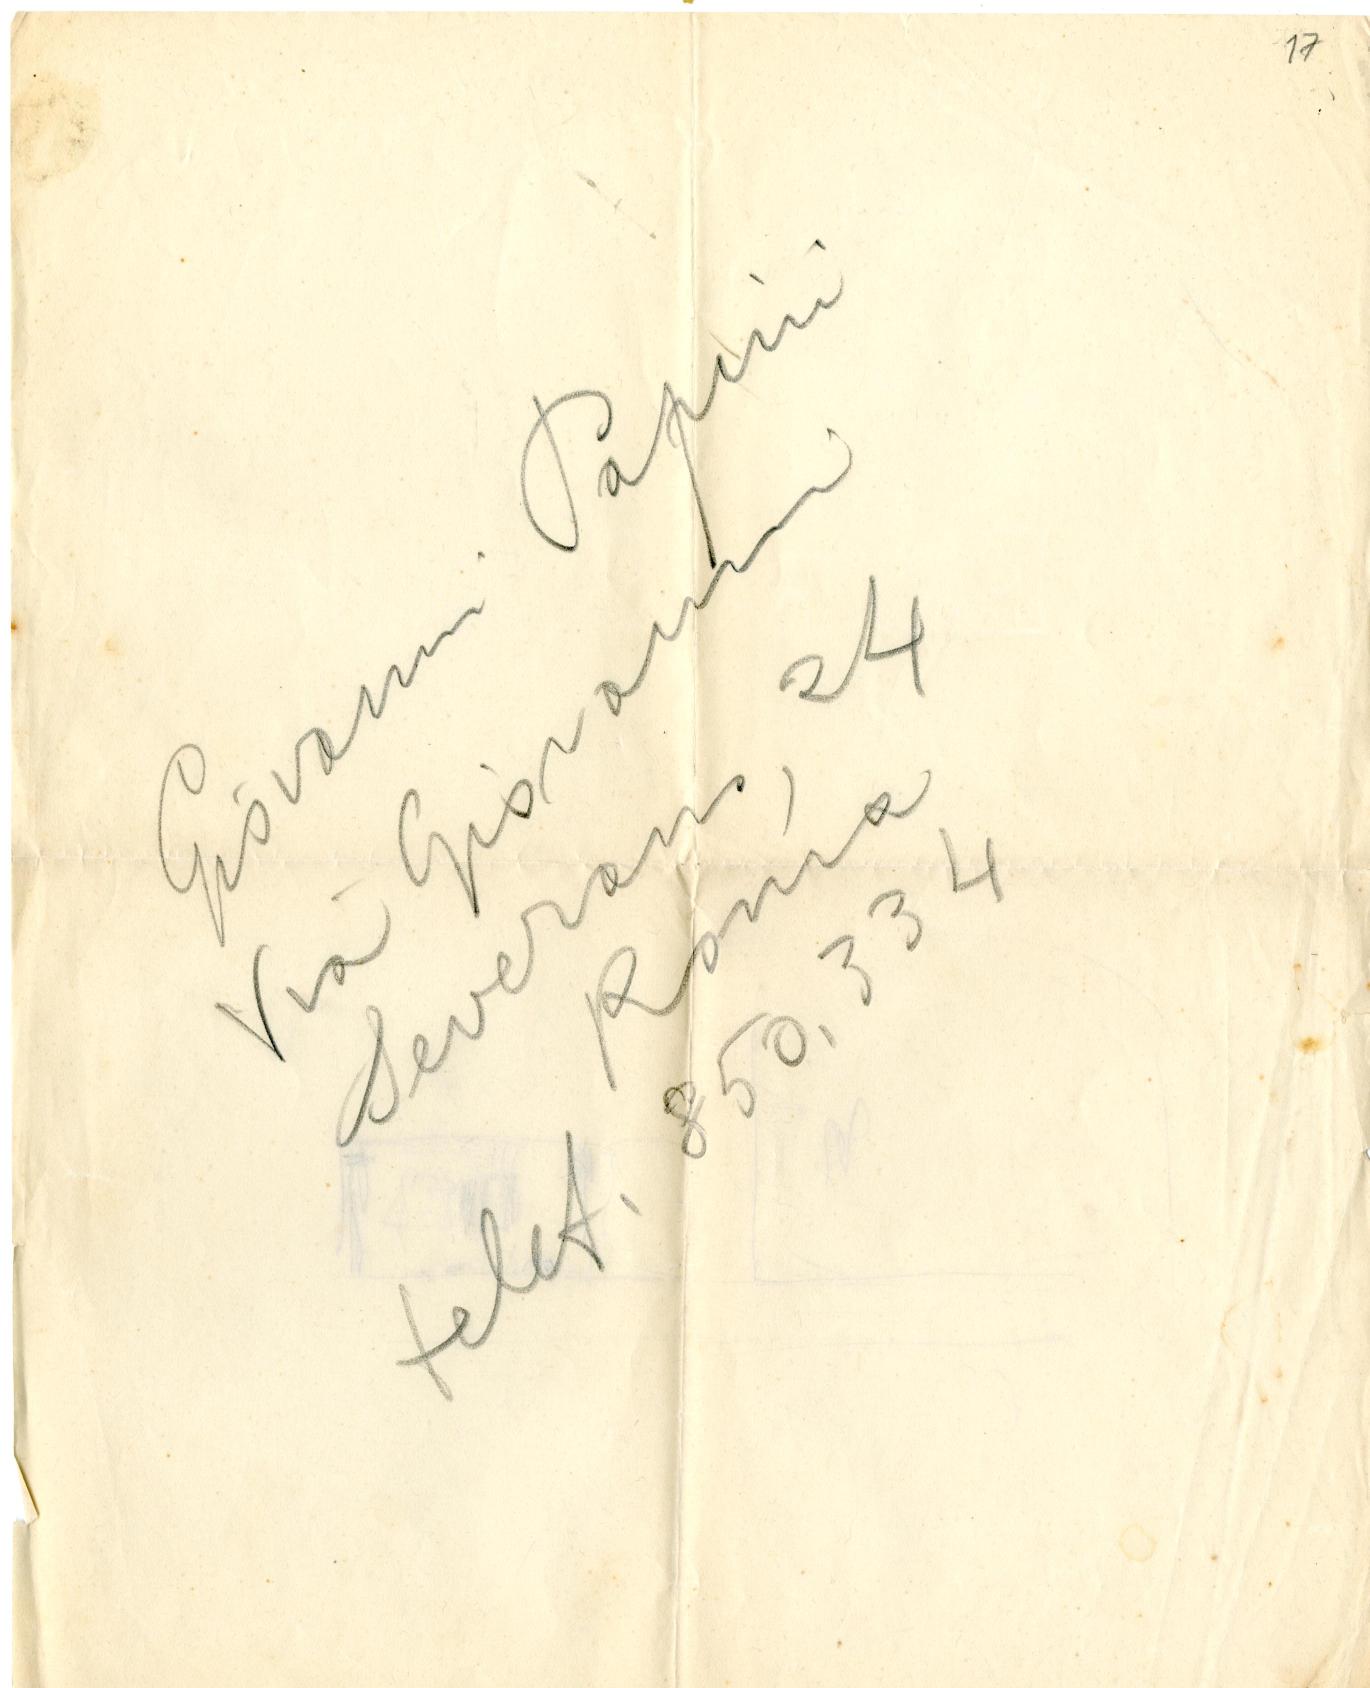 17
Giovanni Papini
Via Giovanni
Severano, 24
Roma
telef. 850.334